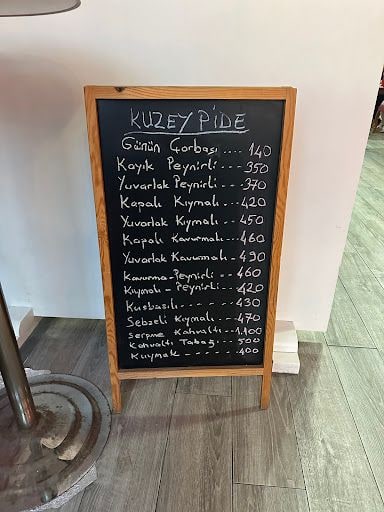 KUZEY PİDE
Günün Çorbası .... 140
Kayık Peynirli --- 350
Yuvarlak Peynirli --- 370
Kapalı Kıymalı --- 420
Yuvarlak Kıymalı --- 450
Kapalı Kavurmalı --- 460
Yuvarlak Kavurmalı -- 490
Kavurma-Peynirli -- 460
Kıymalı - Peynirli -- 420
Kuşbaşılı ------- 430
Sebzeli Kıymalı --- 470
Serpme Kahvaltı -- 1.100
Kahvaltı Tabağı --- 500
Kuymak ------- 400